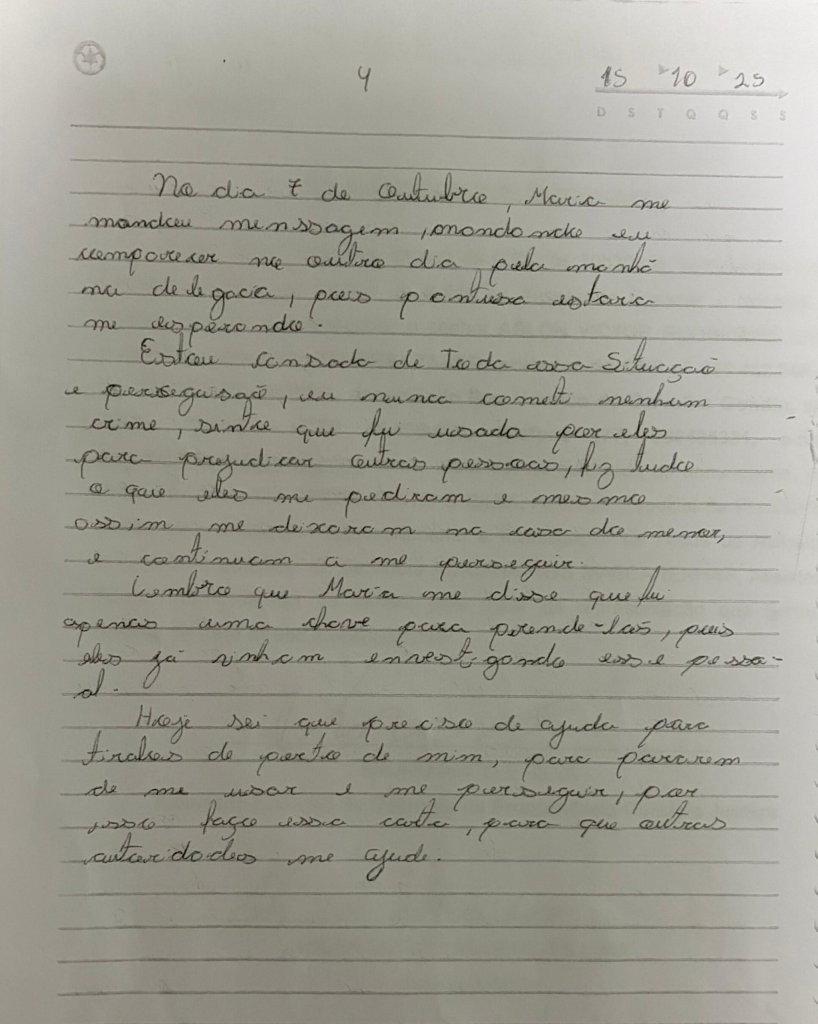 4
15 10 25
D S T Q Q S S
No dia 7 de outubro, Maria me
mandou menssagem, mondondo eu
comparecer no outro dia pela manhã
na delegacia, pois pontusa estaria
me esperando.
Estou consada de Toda essa Situação
e persseguisão, eu nunca comet nenhum
crime, sinto que fui usada por eles
para prejudicar outras pessoas, fiz tudo
o que eles me pediram e mesmo
assim me deixaram na casa do menor,
e continuam a me perseguir.
Lembro que Maria me disse que fui
apenas uma chave para prende-los, pois
eles já vinham envestigando esse pesso-
al.
Hoje sei que preciso de ajuda para
tiralos de perto de mim, para pararem
de me usar e me perseguir, por
isso faço essa carta, para que outras
autoridades me ajude.